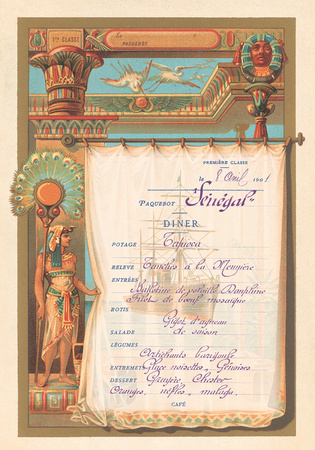 1re CLASSE
Le
PAQUEBOT
PREMIÈRE CLASSE
le 8 Avril 1901
PAQUEBOT "Sénégal"
DINER
POTAGE Tapioca
RELEVÉ Tanches à la Meunière
ENTRÉES Ballotine de volaille Dauphine
Filet de bœuf mosaïque
ROTIS Gigot d'agneau
SALADE de saison
LÉGUMES
Artichauts barigoule
ENTREMETS Glace noisettes _ Génoises
DESSERT Gruyère, Chester
Oranges, nèfles, malaga.
CAFÉ